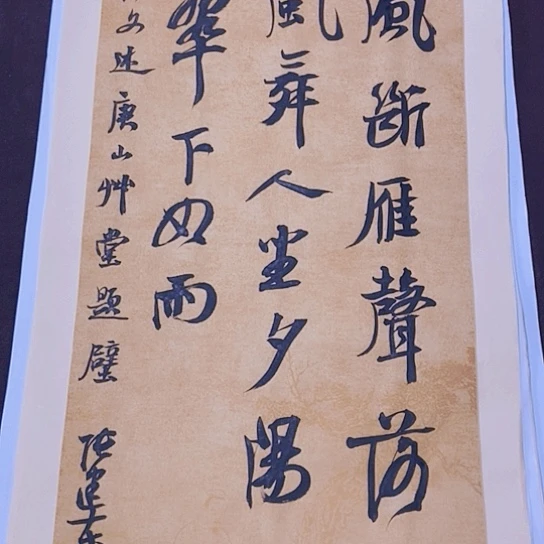 風斷雁聲落
風舞人坐夕陽
翠下如雨
文述庚山艸堂題壁